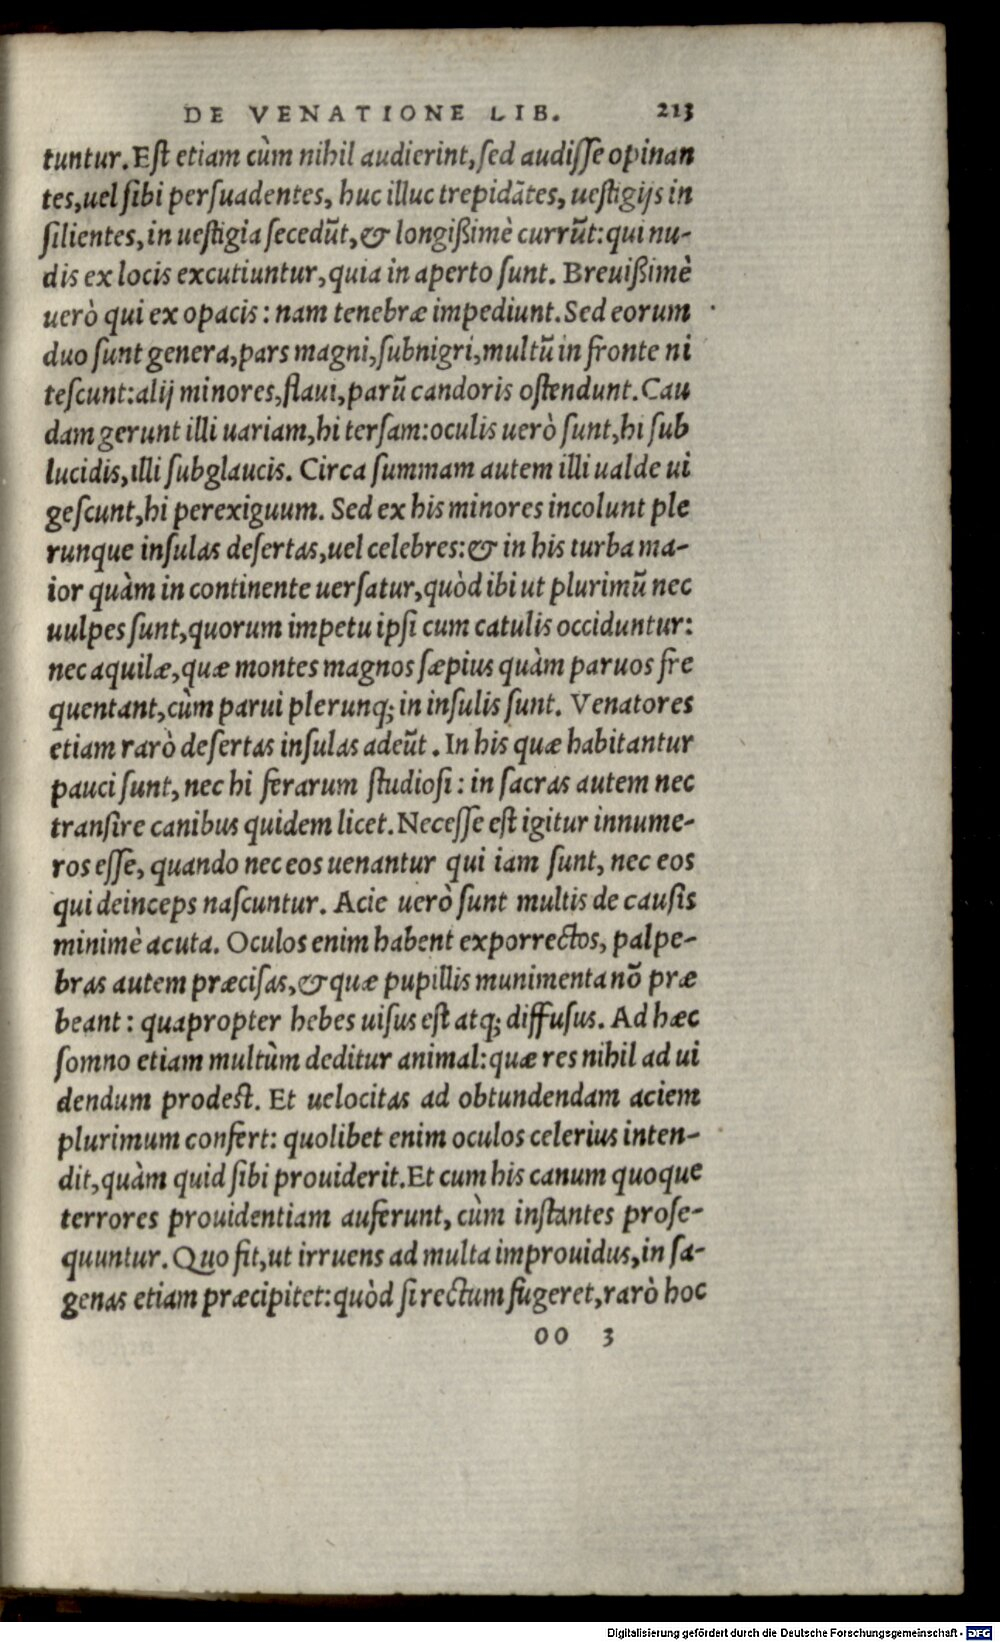 DE VENATIONE LIB. 213
tuntur. Est etiam cùm nihil audierint, sed audisse opinan
tes, uel sibi persuadentes, huc illuc trepidãtes, uestigijs in
silientes, in uestigia secedũt, & longißimè currũt: qui nu-
dis ex locis excutiuntur, quia in aperto sunt. Breuißimè
uerò qui ex opacis: nam tenebræ impediunt. Sed eorum
duo sunt genera, pars magni, subnigri, multũ in fronte ni
tescunt: alij minores, flaui, parũ candoris ostendunt. Cau
dam gerunt illi uariam, hi tersam: oculis uerò sunt, hi sub
lucidis, illi subglaucis. Circa summam autem illi ualde ui
gescunt, hi perexiguum. Sed ex his minores incolunt ple
runque insulas desertas, uel celebres: & in his turba ma-
ior quàm in continente uersatur, quòd ibi ut plurimũ nec
uulpes sunt, quorum impetu ipsi cum catulis occiduntur:
nec aquilæ, quæ montes magnos sæpius quàm paruos fre
quentant, cùm parui plerunq; in insulis sunt. Venatores
etiam rarò desertas insulas adeũt. In his quæ habitantur
pauci sunt, nec hi ferarum studiosi: in sacras autem nec
transire canibus quidem licet. Necesse est igitur innume-
ros esse, quando nec eos uenantur qui iam sunt, nec eos
qui deinceps nascuntur. Acie uerò sunt multis de causis
minimè acuta. Oculos enim habent exporrectos, palpe-
bras autem præcisas, & quæ pupillis munimenta nõ præ
beant: quapropter hebes uisus est atq; diffusus. Ad hæc
somno etiam multùm deditur animal: quæ res nihil ad ui
dendum prodest. Et uelocitas ad obtundendam aciem
plurimum confert: quolibet enim oculos celerius inten-
dit, quàm quid sibi prouiderit. Et cum his canum quoque
terrores prouidentiam auferunt, cùm instantes prose-
quuntur. Quo fit, ut irruens ad multa improuidus, in sa-
genas etiam præcipitet: quòd si rectum fugeret, rarò hoc
oo 3
Digitalisierung gefördert durch die Deutsche Forschungsgemeinschaft - DFG